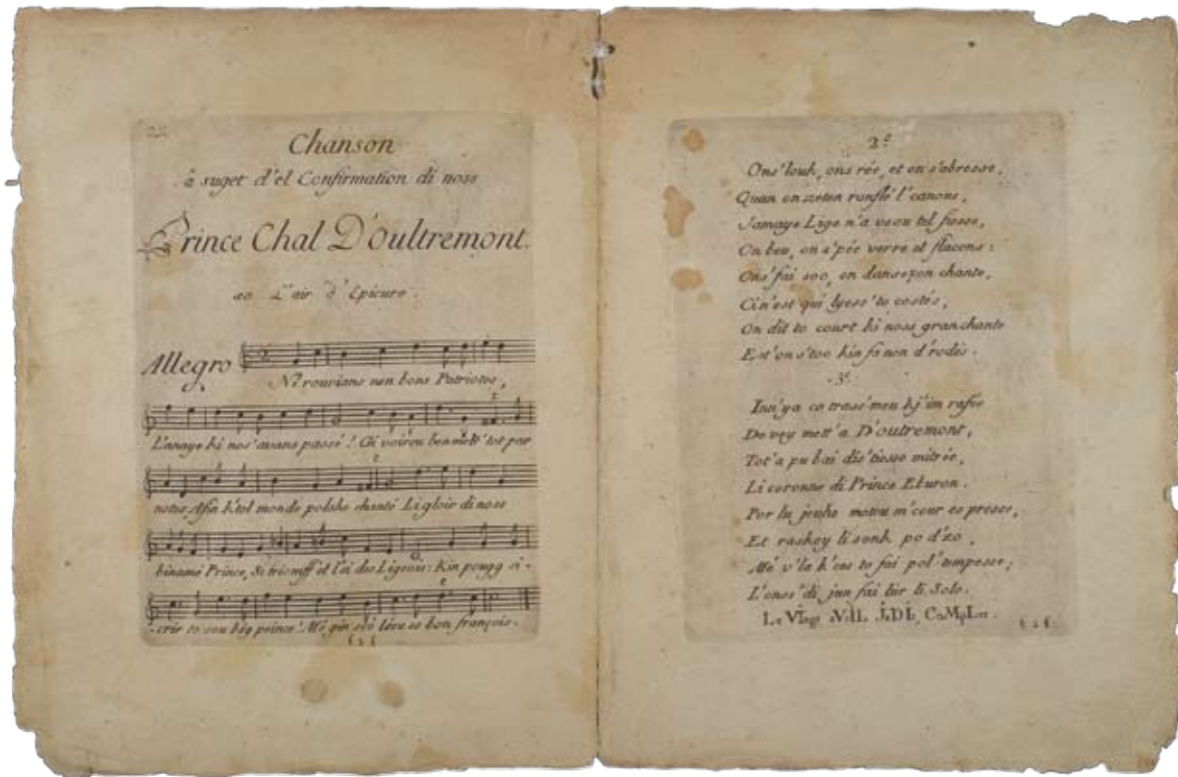 Chanson
â suget d'el Confirmation di noss
Prince Chal D'oultremont.
ao L'air d'Epicure.
Allegro
N'i rouvians nen bons Patriotes,
L'annaye ki nos'avans passé! Ci voirou ben mett'tot par
notes Afin k'tol monde polahe chanté Li gloir di noss
binamé Prince, Si triomff et l'ci des Ligeois: kin pougg si-
-crir to sou big prince! Mé gin
bon françois.
2e
Ons'louk, ons rée, et on s'abresse,
Quan on runflé l'canons,
Jamaye Lige n'a veou tel fiesse,
On beu, on s'pée verre et flacons:
Ons'fai soo, on danse, on chante,
Ci n'est qui to costés,
On dit to court ki noss gran chante
Est'on s'toc kin fs nen d'rodis.
3e
Inn'ya co trass'men kj'im rafie
De vey mett'a D'outremont,
Tot'a pu bai dis'tiesse mitrée,
Li coronne di Prince Eburon.
Por lu jouha motou m'cour es presse,
Et rashey li sonk po d'zo,
Mé v'la k'ess to fai pol'tempesse;
L'onss'di jun fai lür li Solo.